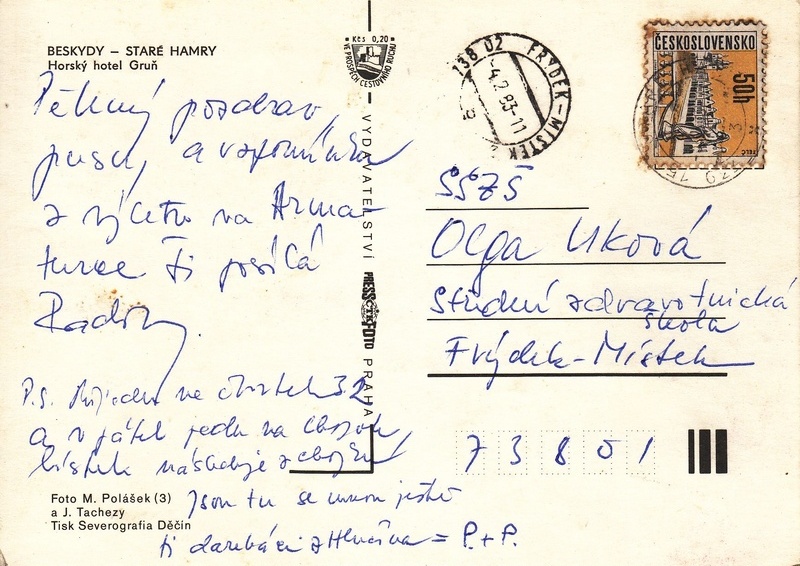 BESKYDY – STARÉ HAMRY
Horský hotel Gruň
Pěkný pozdrav,
pusu, a vzpomínku
z výletu na Arma-
turce Ti posílá
Radim
P.S. ve čtvrtek 3.2
a v pátek jedu na
lístek následuje
Jsou tu se mnou ještě
ti darebáci z Hlučína = P. + P.
Foto M. Polášek (3)
a J. Tachezy
Tisk Severografia Děčín
Kčs 0,20
VE PROSPĚCH CESTOVNÍHO RUCHU
VYDAVATELSTVÍ PRESSFOTO PRAHA
738 02 FRÝDEK-MÍSTEK 2
-4.2.83-11
a
ČESKOSLOVENSKO
50h
TELČ
SŠZŠ
Olga Uková
Střední zdravotnická
škola
Frýdek-Místek
7 3 8 0 1